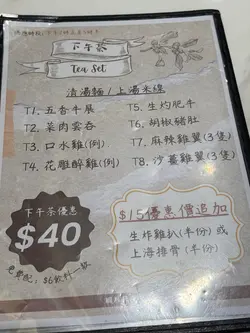 下午茶
Tea Set
清湯麵 / 上湯米線
T1. 五香牛展
T2. 菜肉雲吞
T3. 口水雞(例)
T4. 花雕醉雞(例)
T5. 生灼肥牛
T6. 胡椒豬肚
T7. 麻辣雞翼(3隻)
T8. 沙薑雞翼(3隻)
下午茶優惠
$40
免費配: $6飲料一款
$15優惠價追加
生炸雞扒(半份) 或
上海排骨(半份)